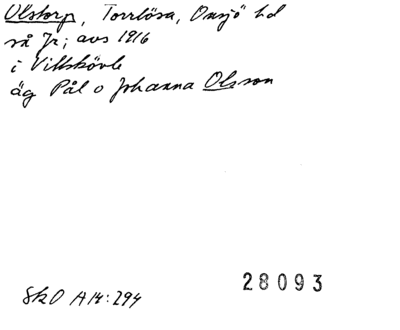 Olstorp, Torrlösa, Onsjö hd
så Jr; avs 1916
i Vittskövle
äg Pål o Johanna Olsson
SkO A14:294
28093